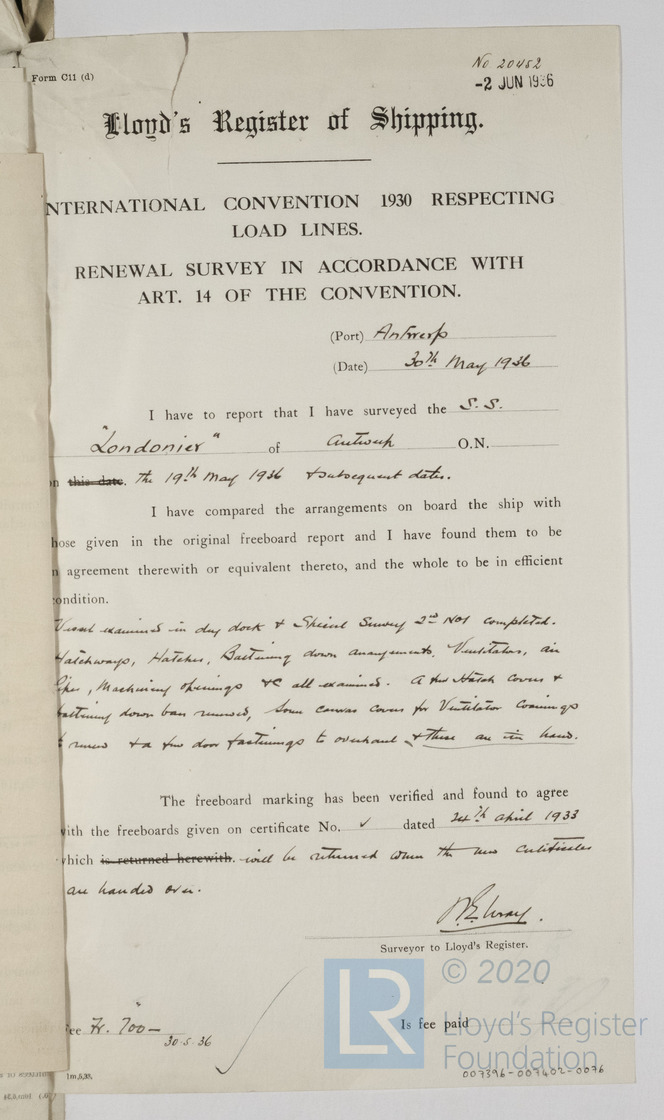 Form C11 (d)
No 20452
-2 JUN 1936
Lloyd's Register of Shipping.
NTERNATIONAL CONVENTION 1930 RESPECTING
LOAD LINES.
RENEWAL SURVEY IN ACCORDANCE WITH
ART. 14 OF THE CONVENTION.
(Port) Antwerp
(Date) 30th May 1936
I have to report that I have surveyed the S.S.
"Londonier" of Antwerp O.N.
n this date. the 19th May 1936 & subsequent dates.
I have compared the arrangements on board the ship with
hose given in the original freeboard report and I have found them to be
n agreement therewith or equivalent thereto, and the whole to be in efficient
ondition.
Vessel examined in dry dock & Special Survey 2nd No1 completed.
Hatchways, Hatches, Battening down arrangements, Ventilators, air
pipes, Machinery openings &c all examined. A few Hatch covers &
battening down bars renewed, Some canvas covers for Ventilator Coamings
to renew & a few door fastenings to overhaul & these are in hand.
The freeboard marking has been verified and found to agree
with the freeboards given on certificate No. ✓ dated 24th April 1933
which is returned herewith. will be returned when the new certificates
are handed over.
Surveyor to Lloyd's Register.
ee Fr. 700—
30.5.36
Is fee paid
LR
© 2020
Lloyd's Register
Foundation
007396-007402-0076
1m,5,35.